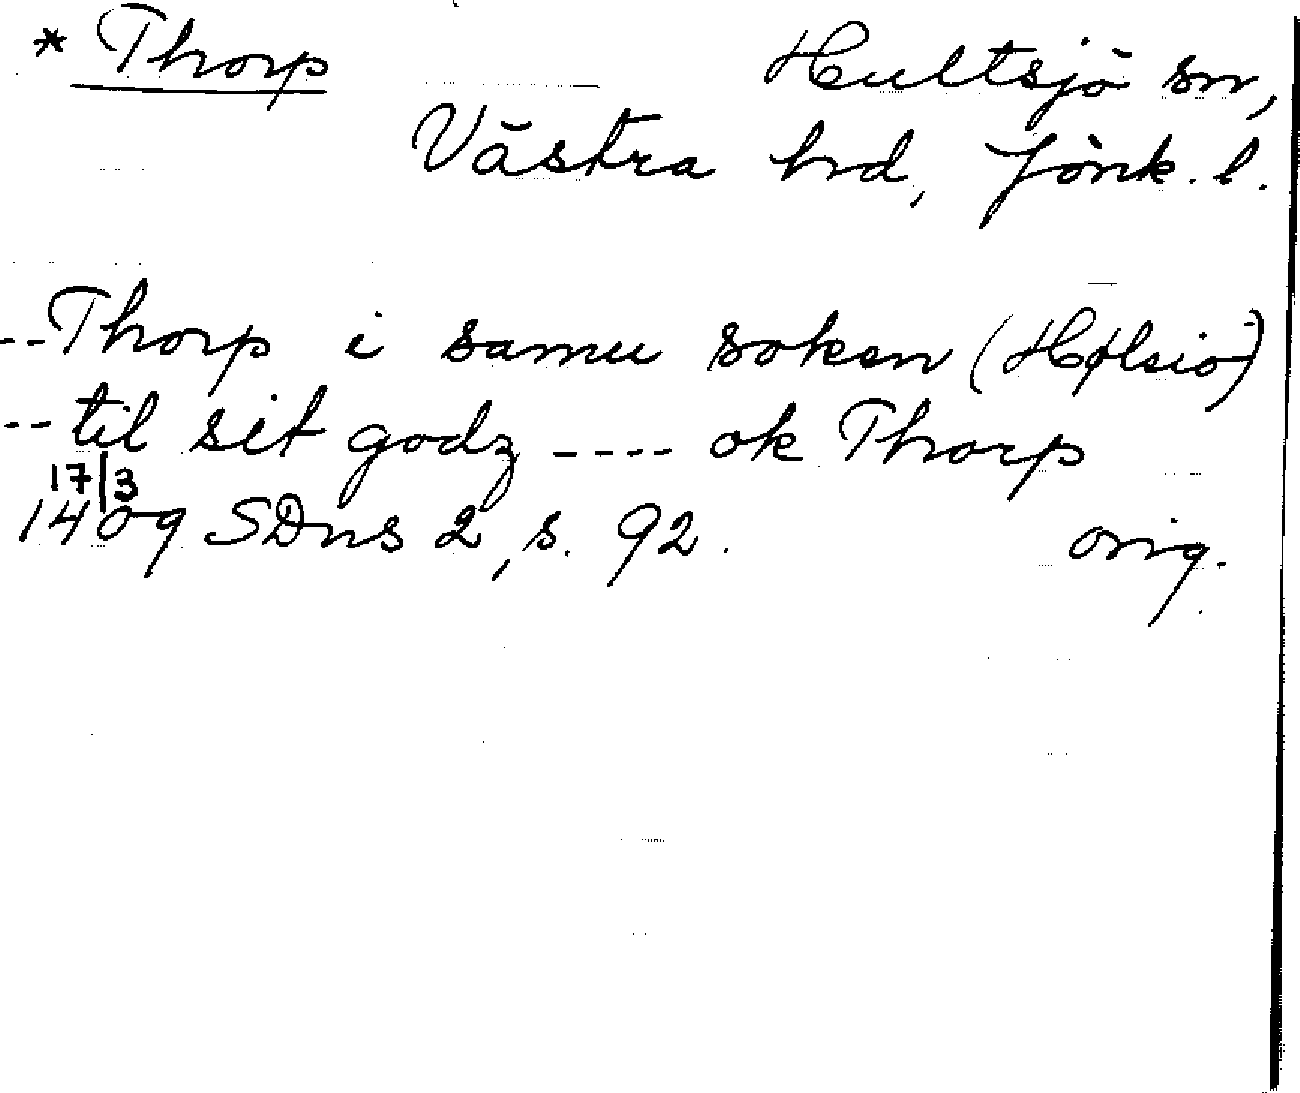 * Thorp Hultsjö sn,
Västra hrd, Jönk. l.
-- Thorp i samu soken (Hølsiö)
-- til sit godz ---- ok Thorp
17/3
1409 SDns 2, s. 92. orig.